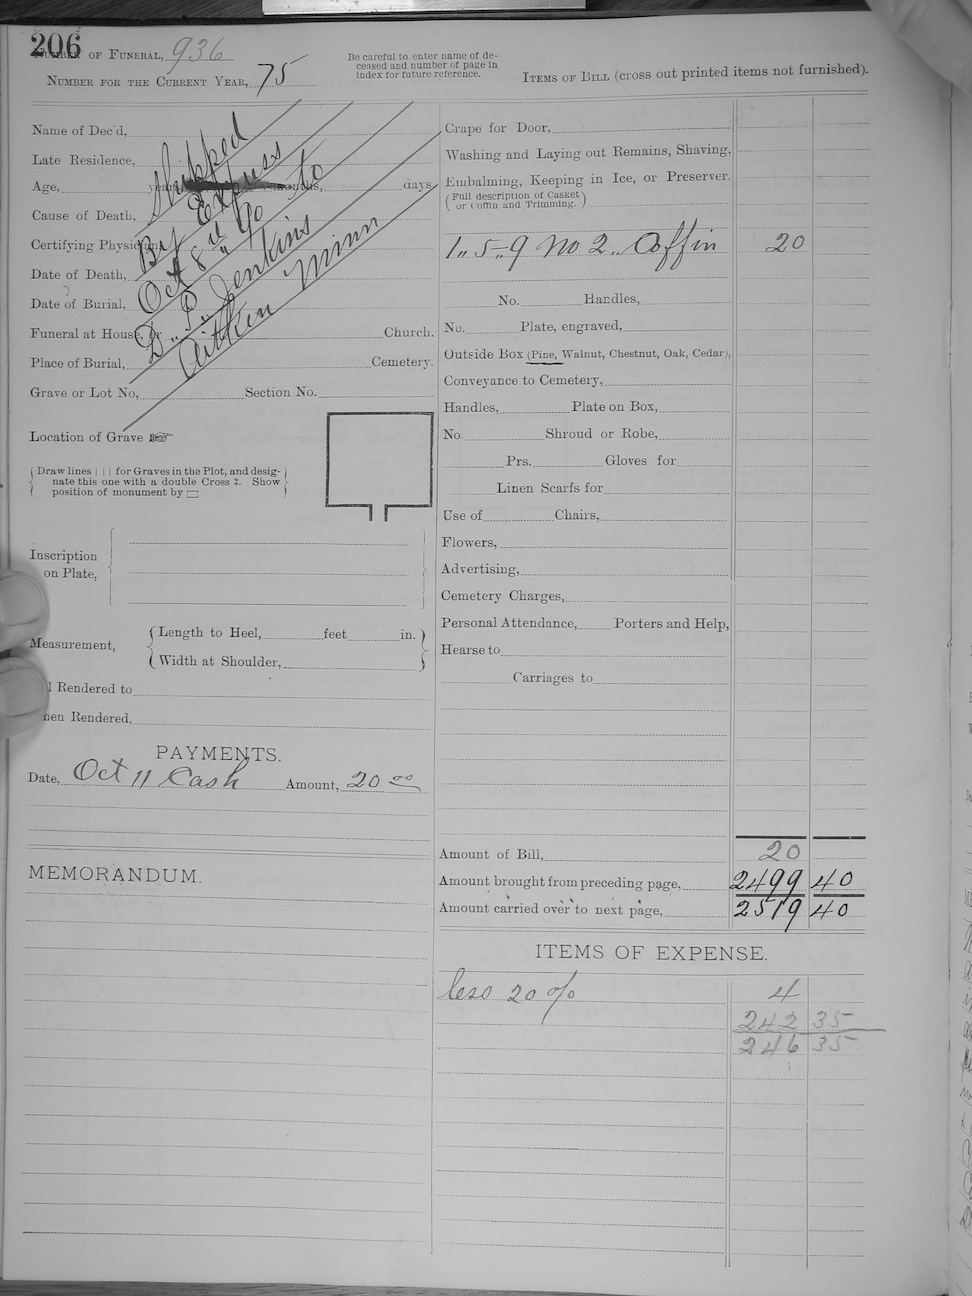 206
Number of Funeral, 936
Number for the Current Year, 75
Be careful to enter name of de-
ceased and number of page in
index for future reference.
Items of Bill (cross out printed items not furnished).
Name of Dec'd,
Late Residence,
Age, years, months, days
Cause of Death,
Certifying Physician,
Date of Death,
Date of Burial,
Funeral at House, or Church.
Place of Burial, Cemetery.
Grave or Lot No, Section No.
Shipped
By Express
Oct 8" 90 to
D., P., Jenkins
Aitken Minn
Location of Grave ☞
Draw lines | | | for Graves in the Plot, and desig-
nate this one with a double Cross ‡. Show
position of monument by ▭
Inscription
on Plate,
Measurement,
Length to Heel, feet in.
Width at Shoulder,
l Rendered to
hen Rendered,
PAYMENTS.
Date, Oct 11 Cash Amount, 20 00
MEMORANDUM.
Crape for Door,
Washing and Laying out Remains, Shaving,
Embalming, Keeping in Ice, or Preserver.
(Full description of Casket
or Coffin and Trimming.)
1,, 5-,,9 No 2,, Coffin 20
No. Handles,
No. Plate, engraved,
Outside Box (Pine, Walnut, Chestnut, Oak, Cedar),
Conveyance to Cemetery,
Handles, Plate on Box,
No. Shroud or Robe,
Prs. Gloves for
Linen Scarfs for
Use of Chairs,
Flowers,
Advertising,
Cemetery Charges,
Personal Attendance, Porters and Help,
Hearse to
Carriages to
Amount of Bill, 20
Amount brought from preceding page, 2499 40
Amount carried over to next page, 2519 40
ITEMS OF EXPENSE.
less 20 % 4
242 35
246 35